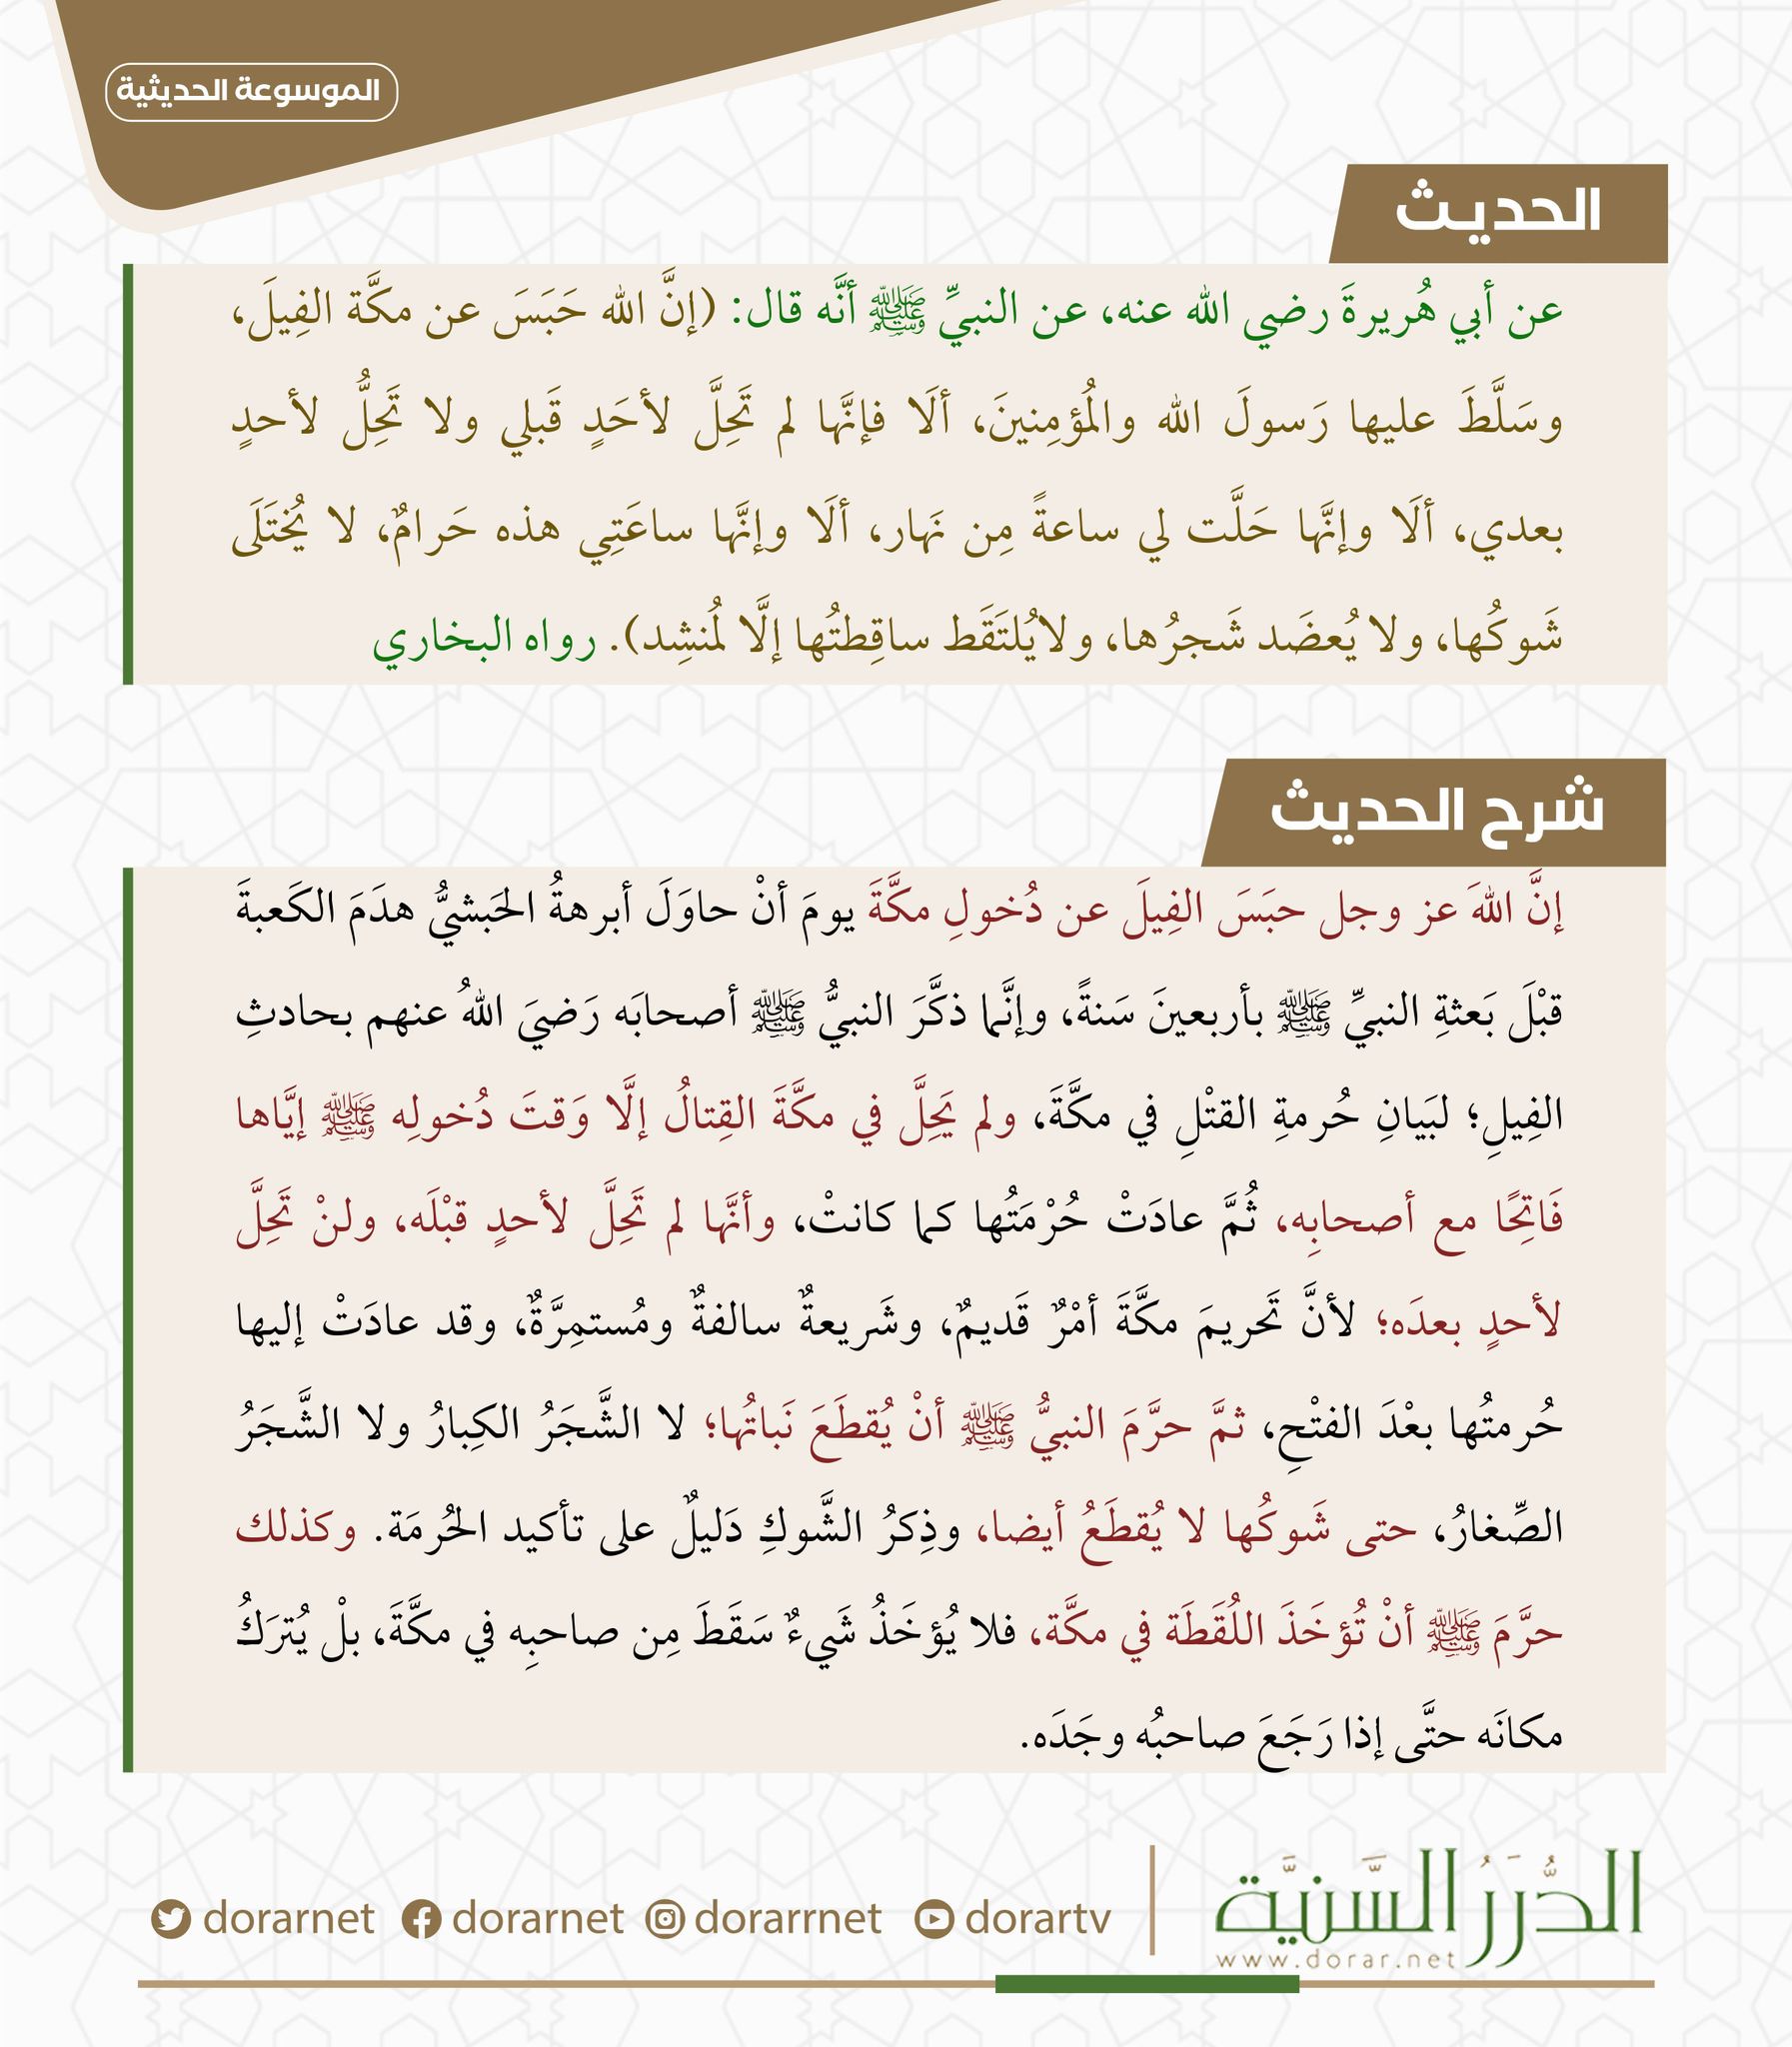 الموسوعة الحديثية
الحديث
عن أبي هُريرةَ رضي الله عنه، عن النبيِّ ﷺ أنَّه قال: (إنَّ الله حَبَسَ عن مكَّة الفِيلَ،
وسَلَّطَ عليها رَسولَ الله والمُؤمِنينَ، ألَا فإنَّها لم تَحِلَّ لأحَدٍ قَبلي ولا تَحِلُّ لأحدٍ
بعدي، ألَا وإنَّها حَلَّت لي ساعةً مِن نَهار، ألَا وإنَّها ساعَتِي هذه حَرامٌ، لا يُختَلَى
شَوكُها، ولا يُعضَد شَجرُها، ولايُلتَقَط ساقِطتُها إلَّا لمُنشِد). رواه البخاري
شرح الحديث
إنَّ اللهَ عز وجل حبَسَ الفِيلَ عن دُخولِ مكَّةَ يومَ أنْ حاوَلَ أبرهةُ الحَبشيُّ هدَمَ الكَعبةَ
قبْلَ بَعثةِ النبيِّ ﷺ بأربعينَ سَنةً، وإنَّما ذكَّرَ النبيُّ ﷺ أصحابَه رَضيَ اللهُ عنهم بحادثِ
الفِيلِ؛ لبَيانِ حُرمةِ القتْلِ في مكَّةَ، ولم يَحِلَّ في مكَّةَ القِتالُ إلَّا وَقتَ دُخولِه ﷺ إيَّاها
فَاتِحًا مع أصحابِه، ثُمَّ عادَتْ حُرْمَتُها كما كانتْ، وأنَّها لم تَحِلَّ لأحدٍ قبْلَه، ولنْ تَحِلَّ
لأحدٍ بعدَه؛ لأنَّ تَحريمَ مكَّةَ أمْرٌ قَديمٌ، وشَريعةٌ سالفةٌ ومُستمِرَّةٌ، وقد عادَتْ إليها
حُرمتُها بعْدَ الفتْحِ، ثمَّ حرَّمَ النبيُّ ﷺ أنْ يُقطَعَ نَباتُها؛ لا الشَّجَرُ الكِبارُ ولا الشَّجَرُ
الصِّغارُ، حتى شَوكُها لا يُقطَعُ أيضا، وذِكرُ الشَّوكِ دَليلٌ على تأكيد الحُرمَة. وكذلك
حرَّمَ ﷺ أنْ تُؤخَذَ اللُقَطَة في مكَّة، فلا يُؤخَذُ شَيءٌ سَقَطَ مِن صاحبِه في مكَّةَ، بلْ يُترَكُ
مكانَه حتَّى إذا رَجَعَ صاحبُه وجَدَه.
الدُّرَرُ السَّنيَّة
www.dorar.net
dorarnet dorarnet dorarrnet dorartv